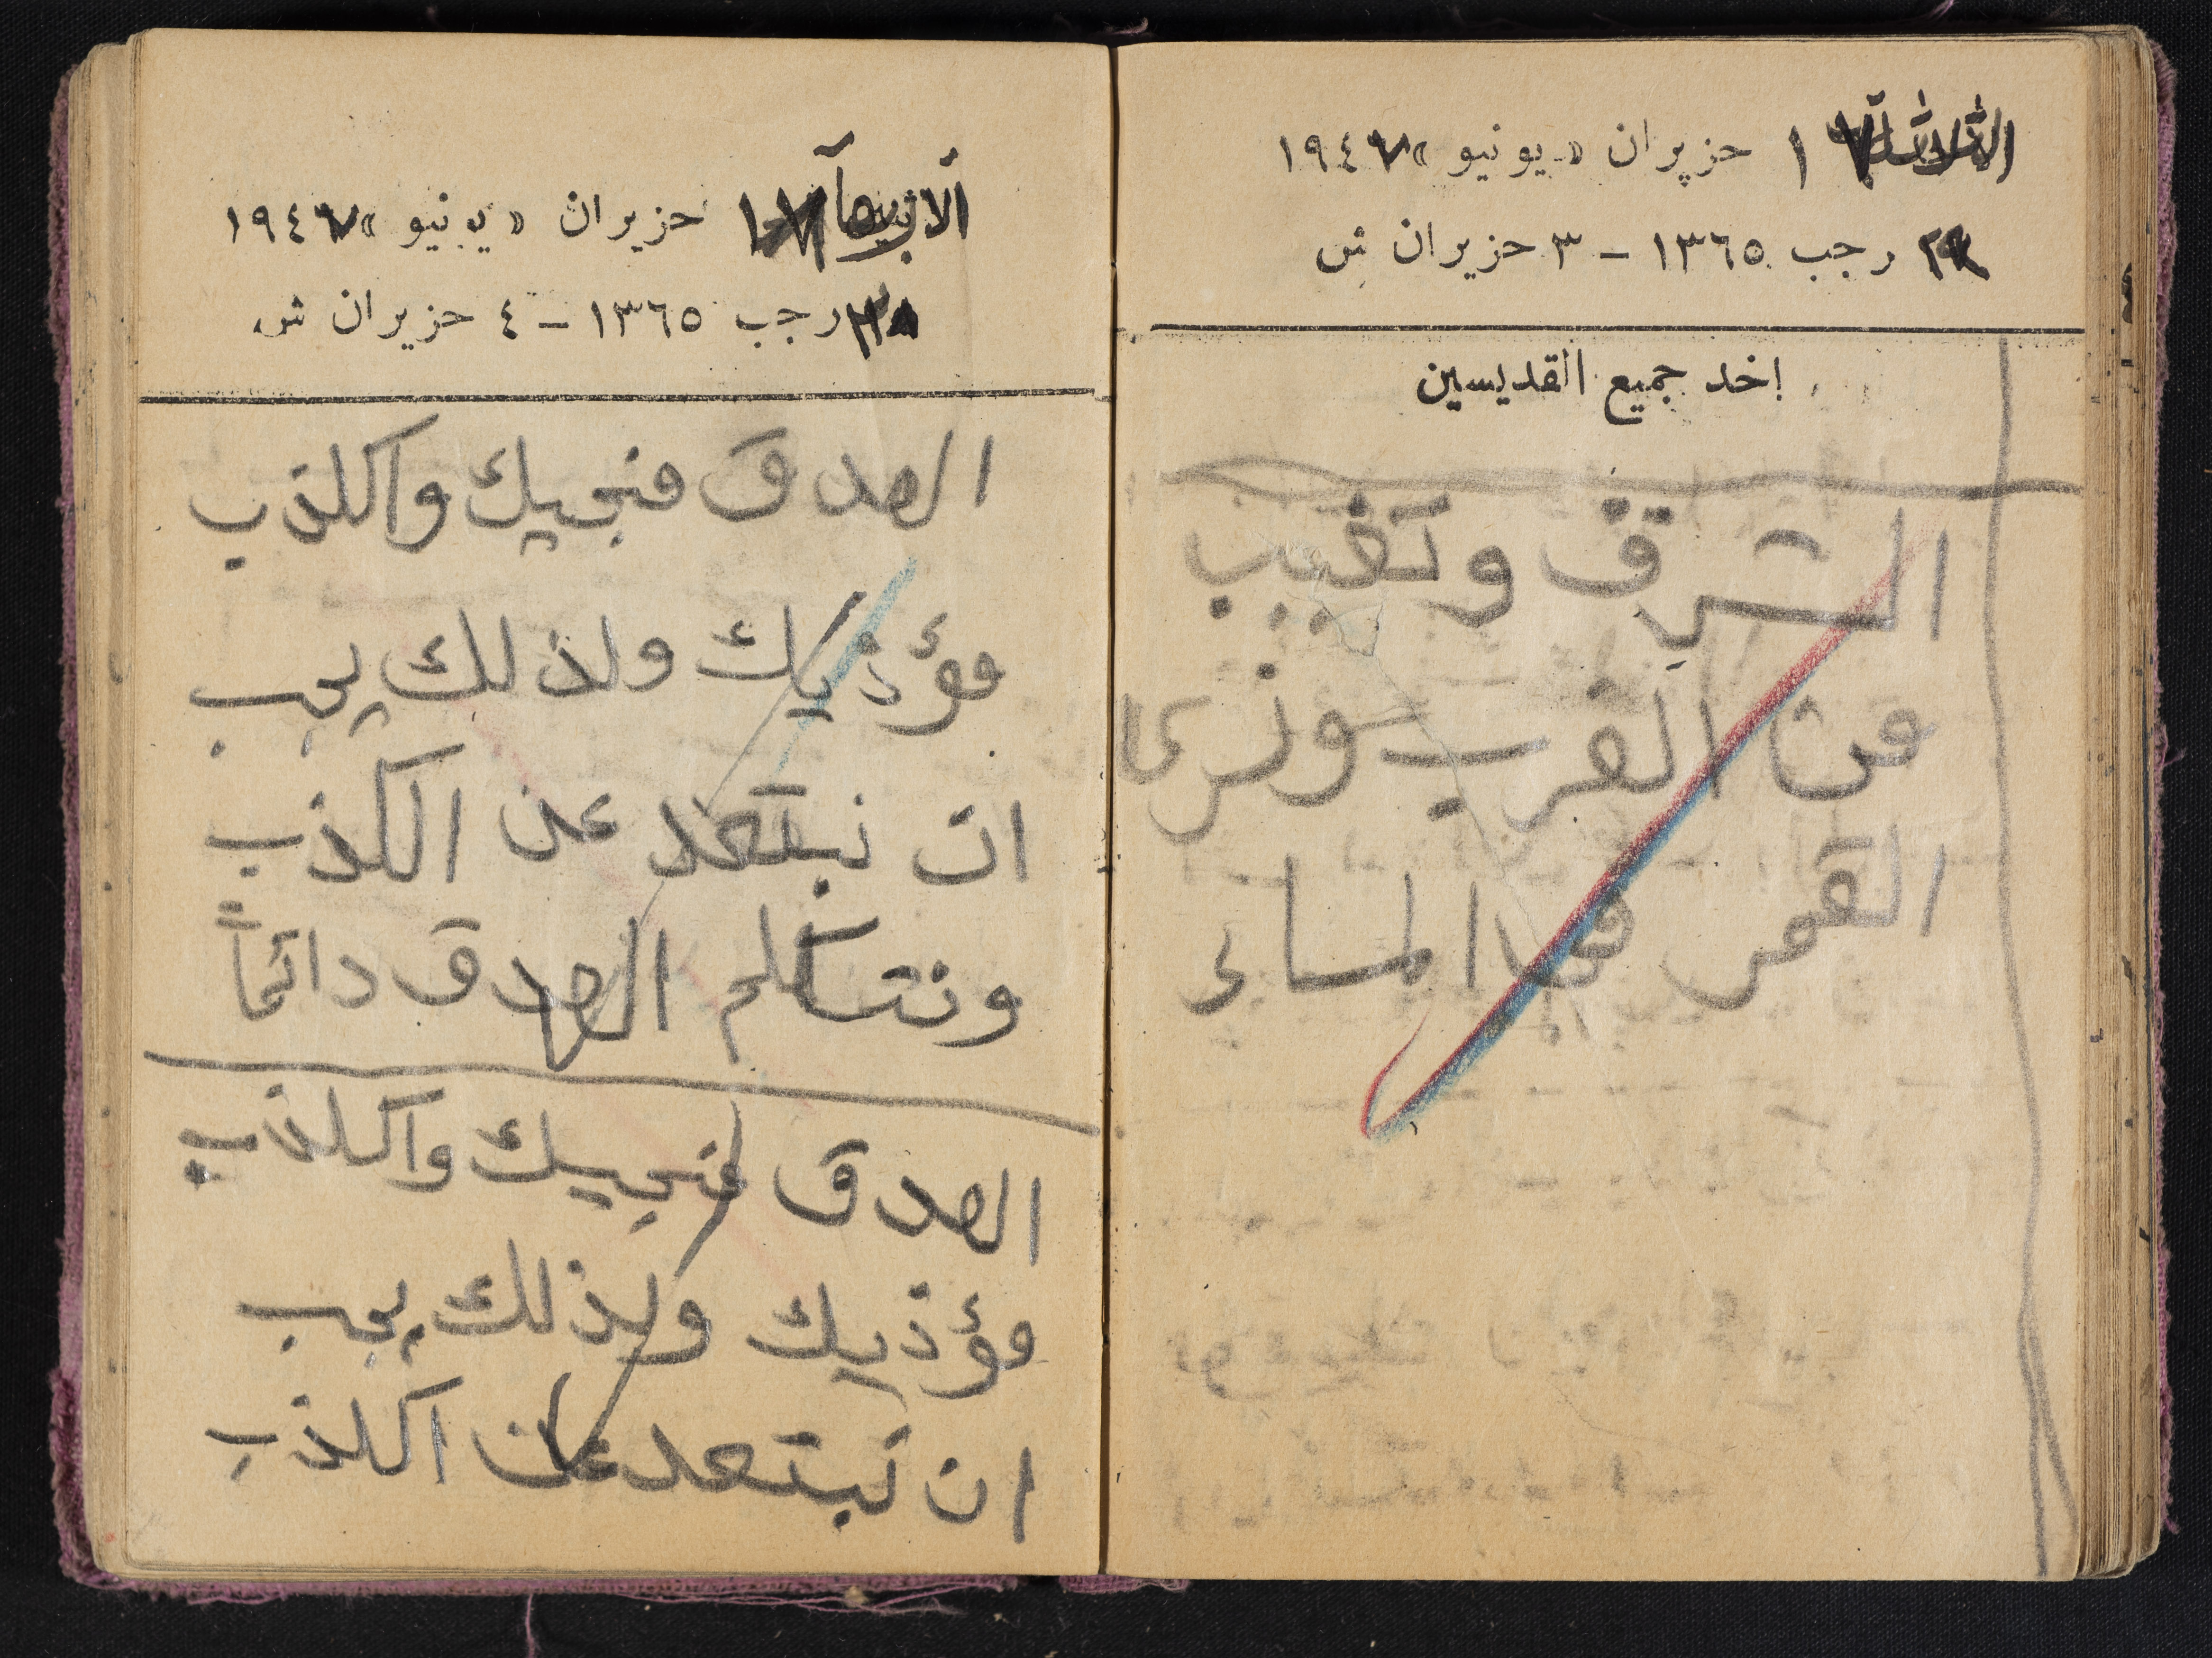 الثلاثاء ١٧ حزيران «يونيو» ١٩٤٧
رجب ١٣٦٥ – ٣ حزيران ش
احد جميع القديسين
الشرق وتغيب
من الغرب ونرى
القمر في المسائ
حزيران «يونيو» ١٩٤٧
رجب ١٣٦٥ – ٤ حزيران ش
الصدق منجيك والكذب
مؤذيك ولذلك يجب
ان نبتعد عن الكذب
ونتكلم الصدق دائماً
الصدق منجيك والكذب
مؤذيك ولذلك يجب
ان نبتعد عن الكذب